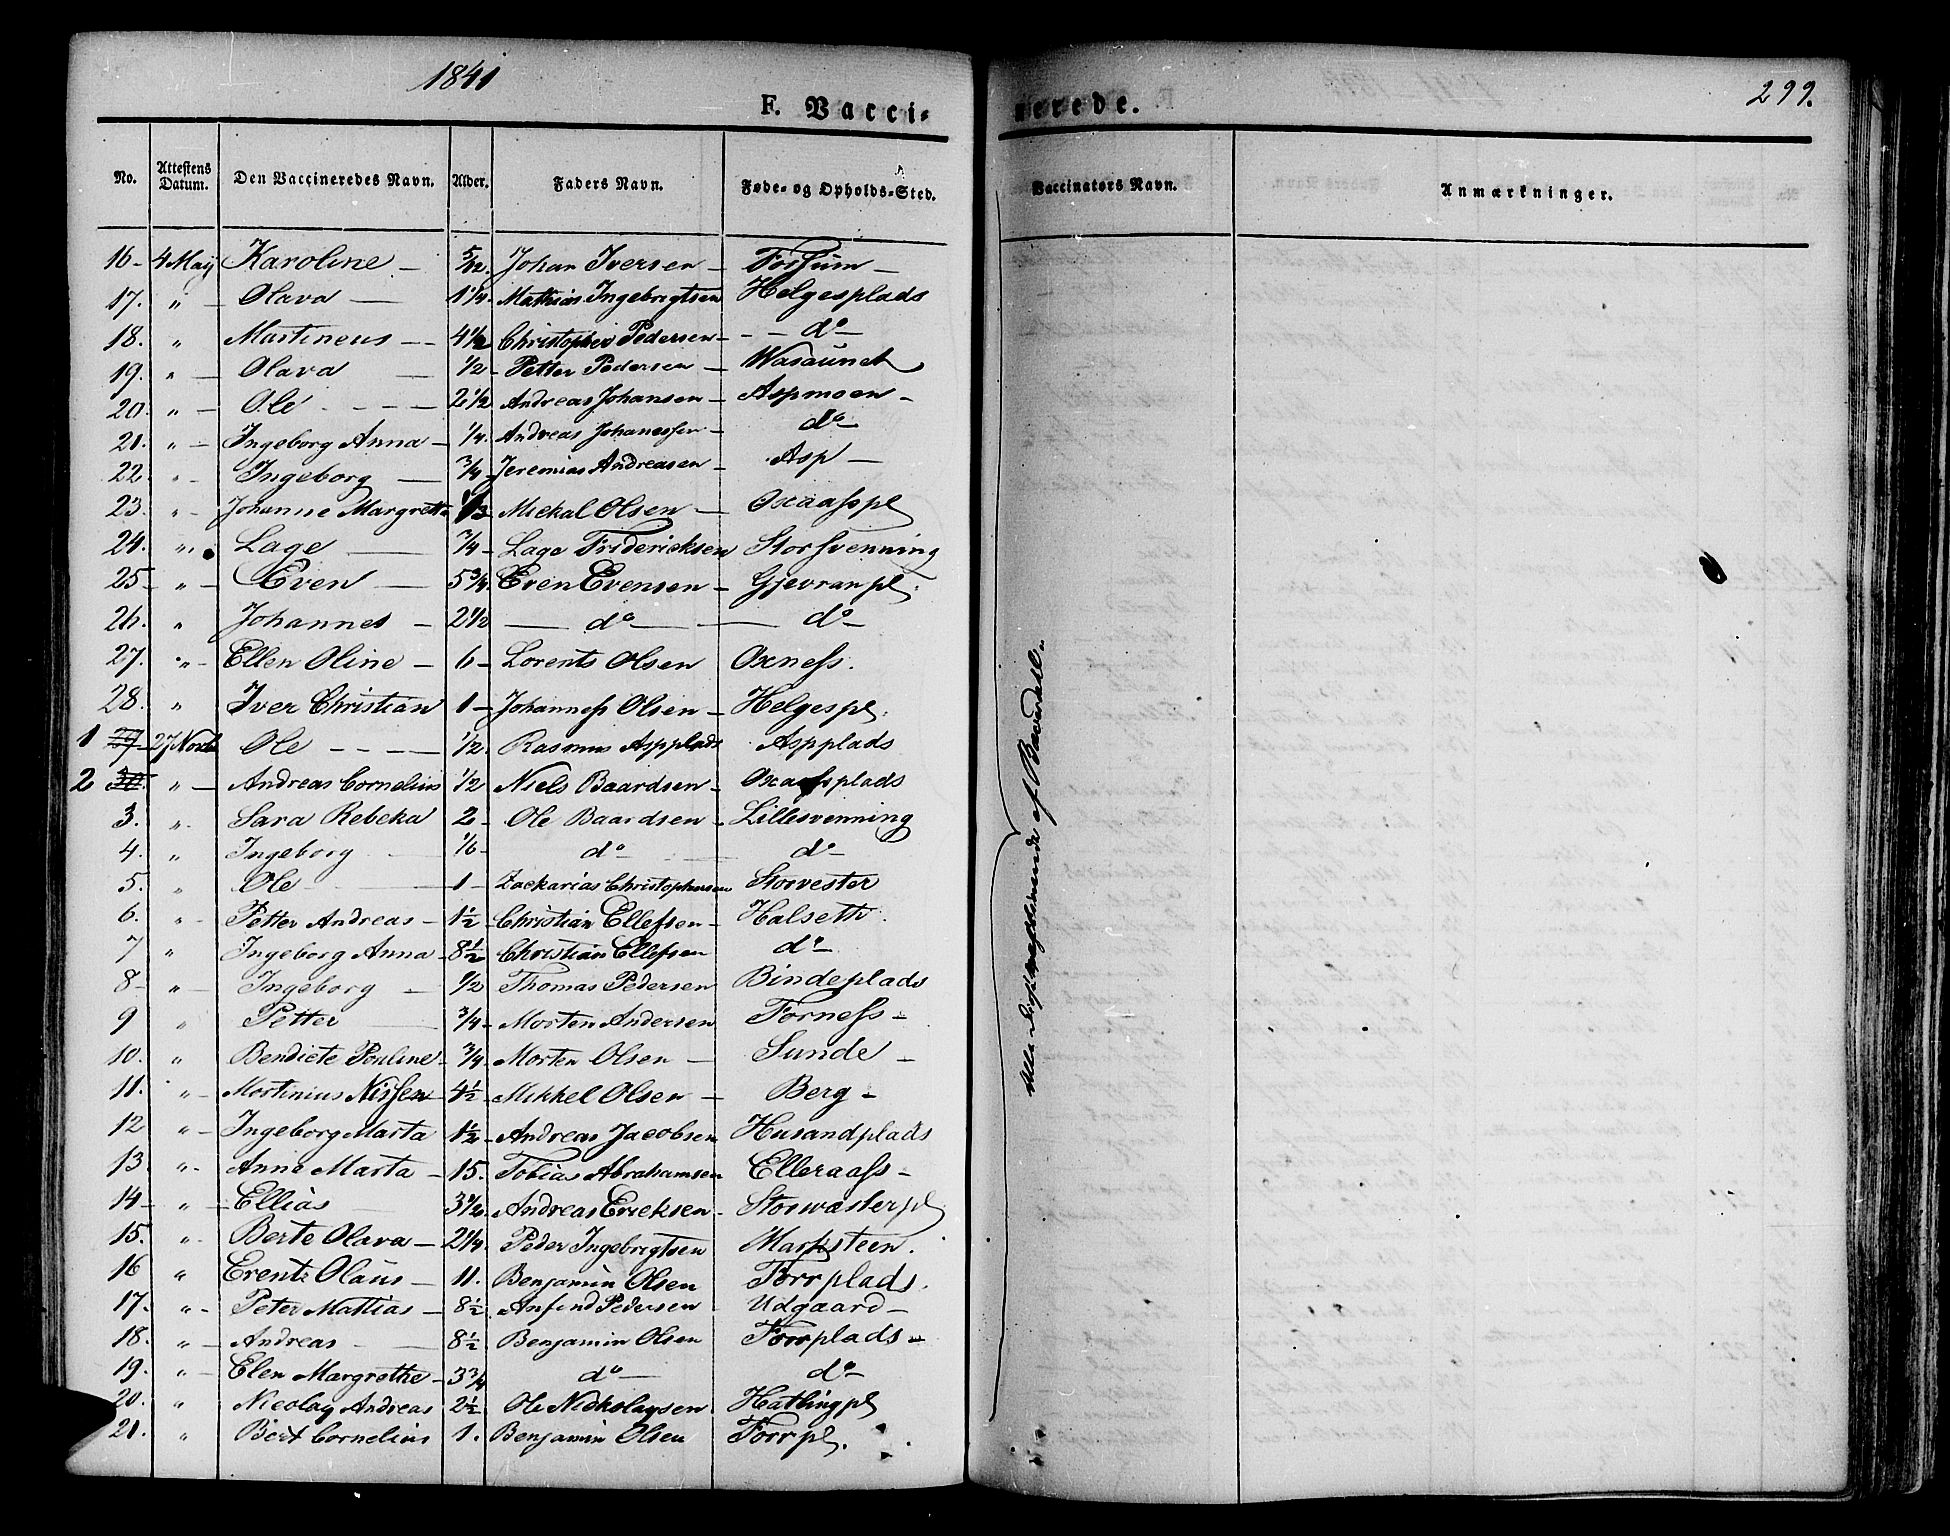 1841
299.
F. Vaccinerede.
No. Attestens Datum. Den Vaccineredes Navn. Alder. Faders Navn. Føde- og Opholds-Sted. Vaccinators Navn. Anmærkninger.
16- 4 May Karoline - 5/12. Johan Iversen - Forsum -
17. " - Olava - 1 1/4 - Mathias Ingebrigtsen Helgesplads
18. " Martineus - - 4 1/2 Christopher Pedersen - - do -
19. " - Olava - 1/2 - Petter Pedersen - Wasaunet
20. " - Ole - - - - 2 1/2 Andreas Johansen - Aspmoen -
21. " - Ingeborg Anna - 1/4. Andreas Johanessen - do -
22. " - Ingeborg - 3/4 - Jeremias Andreasen - Asp -
23. " - Johanne Margrethe Mickal Olsen - Oxaasspl
24. " Lage - 3/4 - Lage Fridericksen Storsvenning
25 - " - Even - 5 3/4 Even Evensen - Gjevranpl.
26. " Johannes - 2 1/2 - do - - do -
27. " - Ellen Oline - 6 - Lorents Olsen Oxness.
28. " Iver Christian 1 - Johanness Olsen - Helgespl.
1 29 - 27 Novb Ole - - - - 1/2. Rasmus Aspplads Aspplads
2 30. " - Andreas Cornelius 1/2 Niels Baardsen - Oxaasplads
3. " - Sara Rebeka 2 - Ole Baardsen - Lillesvenning
4. " Ingeborg - 1/6 - do - - do -
5. " Ole - 1 - Zackarias Christophersen Storvester
6. " - Petter Andreas - 1 1/2 - Christian Ellefsen - Halseth.
7 " Ingeborg Anna - 8 1/2 Christian Ellefsen do -
8 - " - Ingeborg - 1/2 Thomas Pedersen Bindeplads
9 " Petter - 3/4 - Morten Andersen Forness -
10. " Bendicte Pouline - 3/4 - Morten Olsen - Sunde -
11. " - Mortinius Nissen 4 1/2 - Mikkel Olsen - Berg -
12 " - Ingeborg Marta 1 1/2 - Andreas Jacobsen Husandplads
13. " - Anne Marta - 15. Tobias Abrahamsen Elleraass -
14 - " - Ellias 3 1/2 Andreas Ericksen - Storwæsterpl
15. " - Berte Olava - 2 1/4. Peder Ingebrigtsen Marksteen.
16 " Erents Olaus - 11. Benjamin Olsen Forrplads.
17. " - Peter Mattias - 8 1/2 - Anfind Pedersen - Udgaard -
18. " - Andreas - 8 1/2 Benjamin Olsen Forrplads -
19. " - Elen Margrethe - 3 3/4 do - do -
20. " Nicolay Andreas 2 1/2 Ole Nickolaysen Hatlingpl
21. " Bert Cornelius 1. Benjamin Olsen Forrpl.